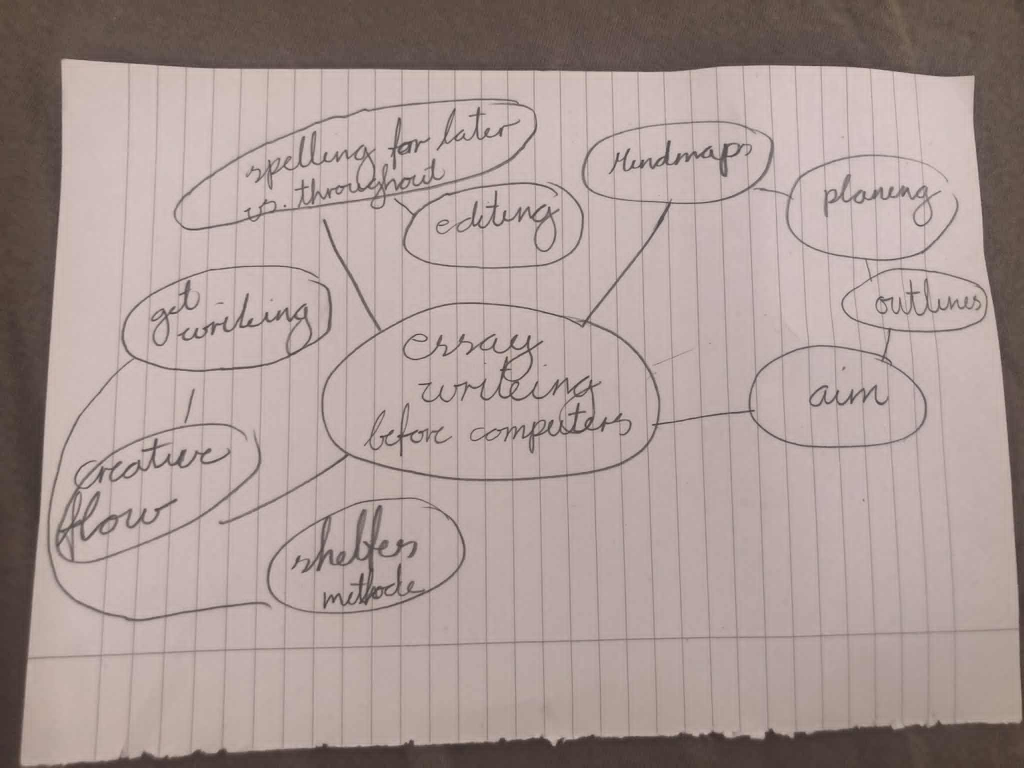 spelling for later
vs. throughout
editing
Mindmaps
planing
outlines
aim
essay
writeing
before computers
get
writing
creative
flow
shelfes
methode